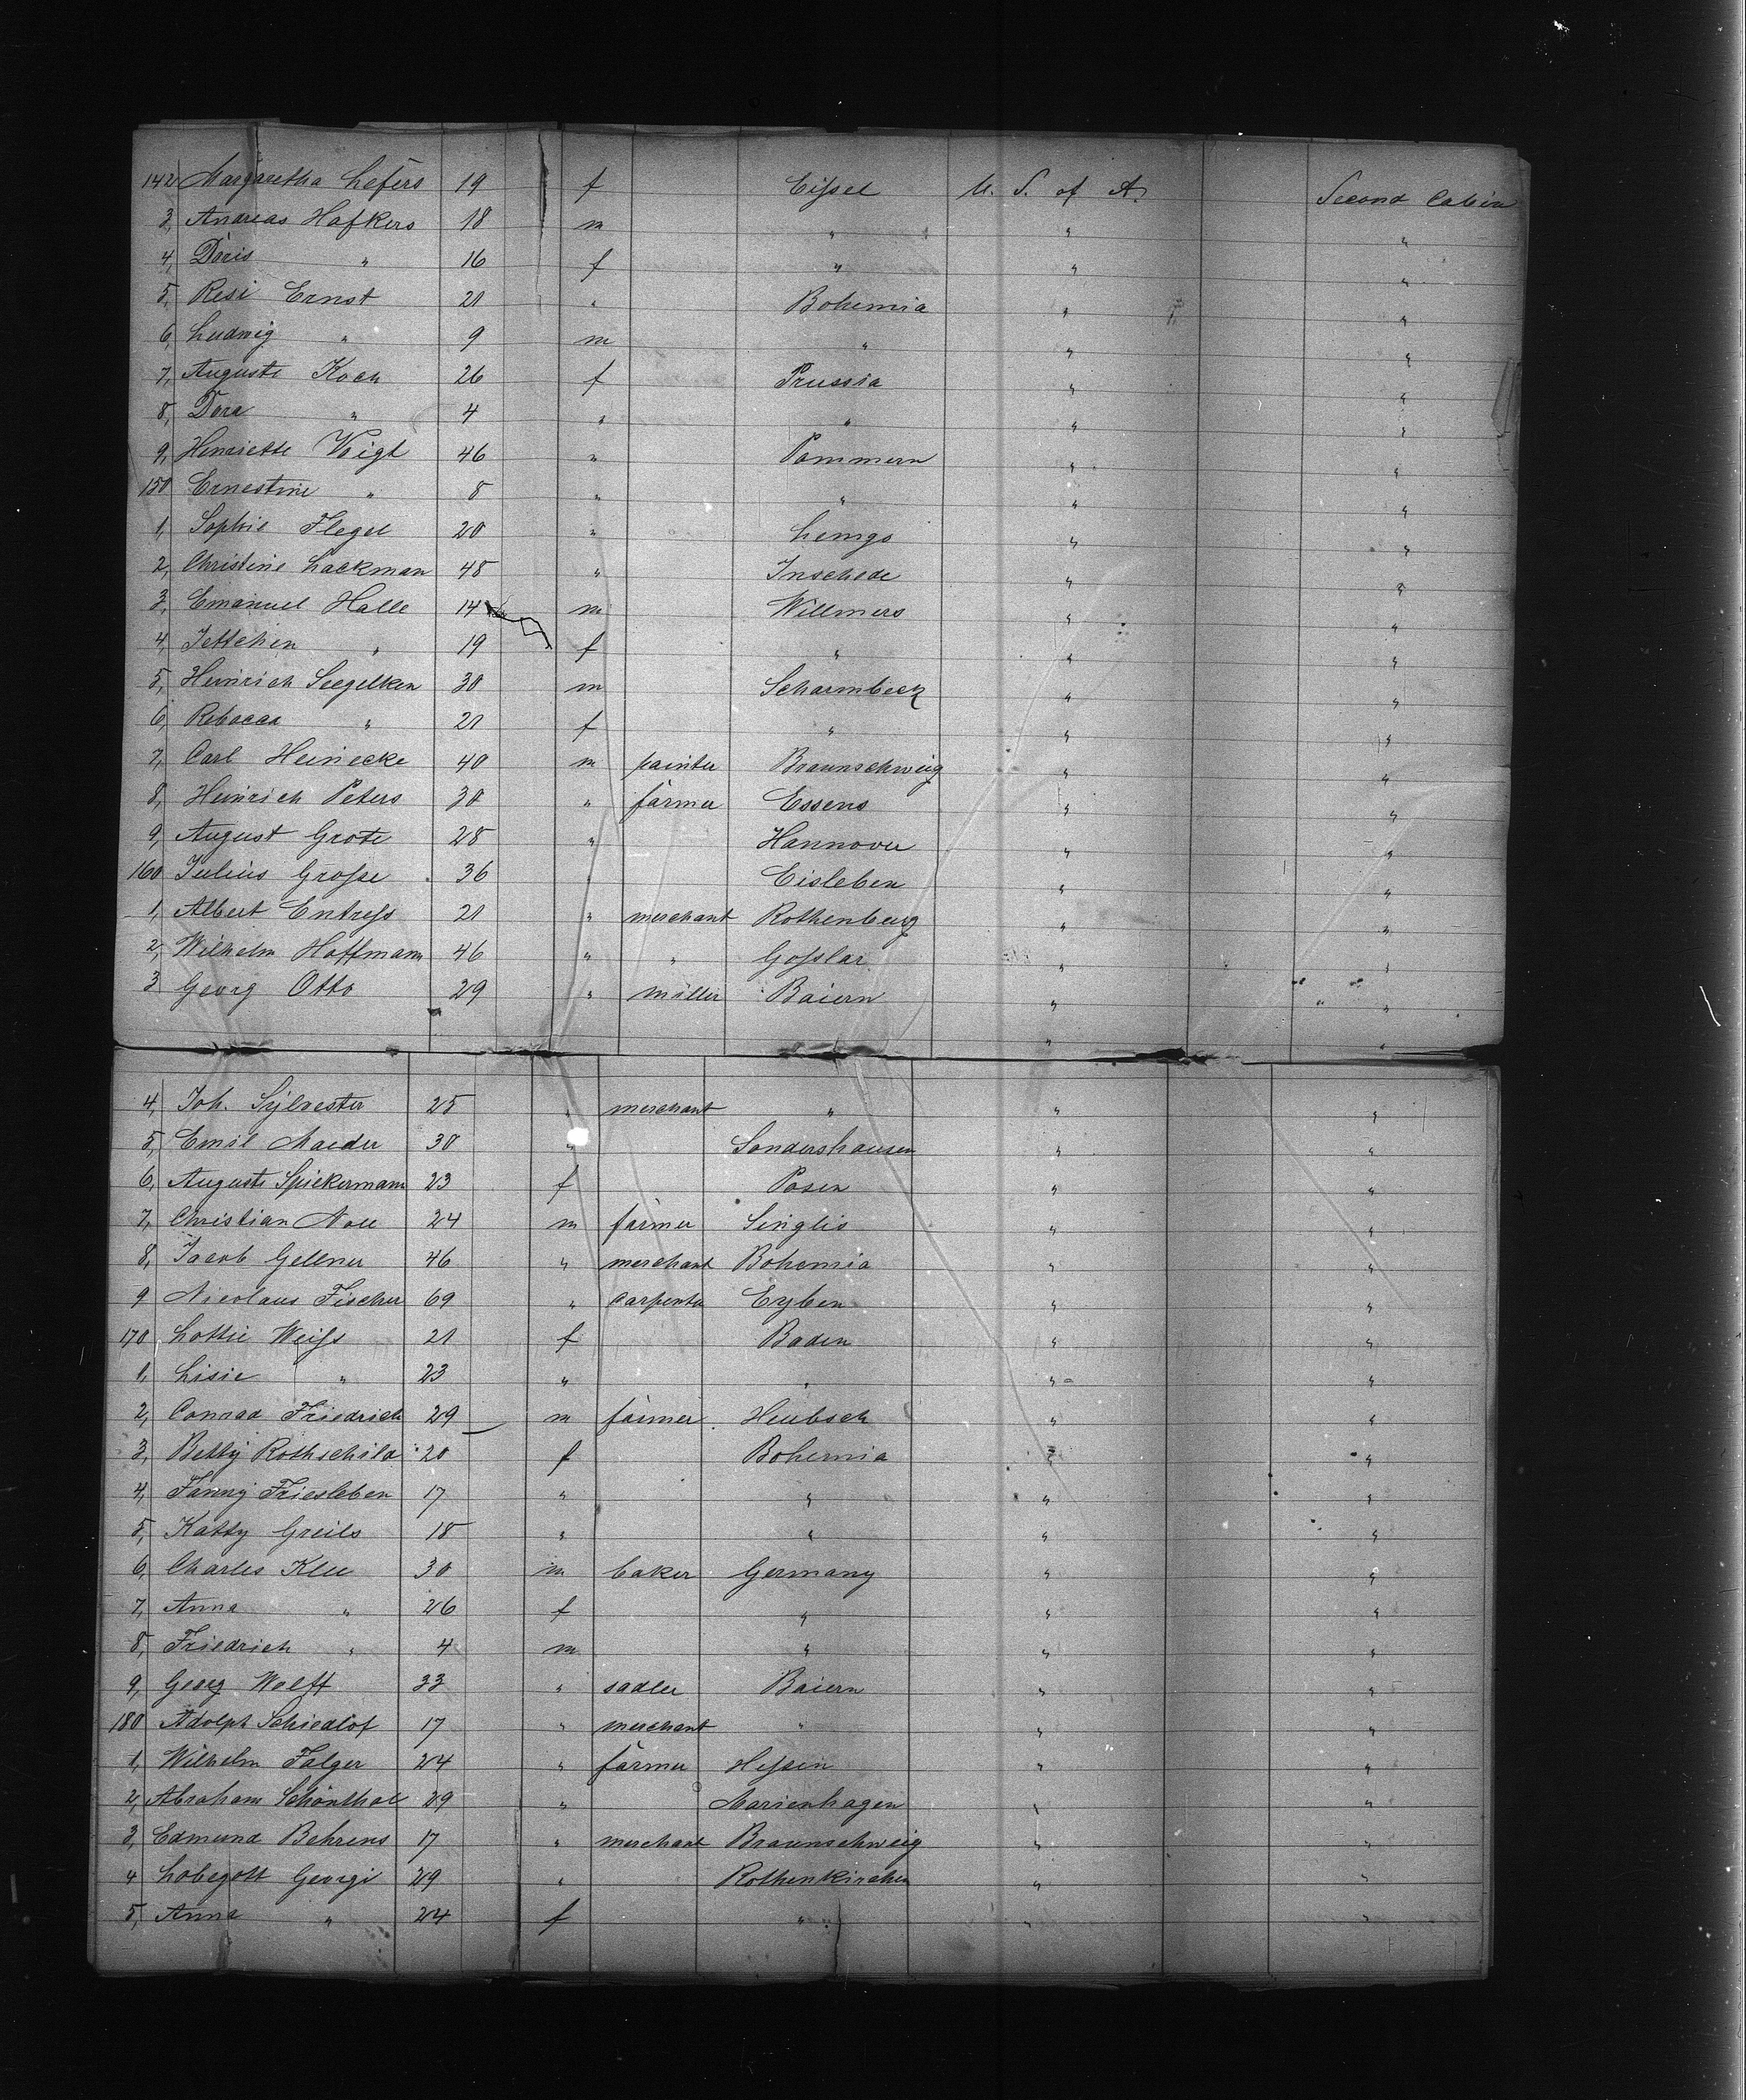 142 Margaretha Lefers 19 f Eissel U. S. of A. Second Cabin
3, Andreas Hofkers 18 m " " "
4, Doris " 16 f " " "
5, Resi Ernst 21 " Bohemia " "
6, Ludwig " 9 m " " "
7, Auguste Koch 26 f Prussia " "
8, Dora " 4 " " " "
9, Henriette Voigt 46 " Pommern " "
150 Ernestine " 8 " " " "
1, Sophie Flegel 20 " Lemgo " "
2, Christine Lackman 48 " Inschede " "
3, Emanuel Halle 14 m Willmers " "
4, Jettchen " 19 f " " "
5, Heinrich Seegelken 30 m Scharmbeck " "
6, Rebecca " 21 f " " "
7, Carl Heinecke 40 m painter Braunschweig " "
8, Heinrich Peters 30 " farmer Essens " "
9, August Grote 28 " Hannover " "
160 Julius Grosse 36 " Eisleben " "
1, Albert Entress 21 " merchant Rothenburg " "
2, Wilhelm Hoffmann 46 " " Gosslar " "
3 Georg Otto 29 " miller Baiern " "
" "
4, Joh. Sylvester 25 " merchant " " "
5, Emil Maeder 30 " Sondershausen " "
6, Auguste Spiekermann 23 f Posen " "
7, Christian Noll 24 m farmer Singlis " "
8, Jacob Gellner 46 " merchant Bohemia " "
9 Nicolaus Fischer 69 " carpenter Eyben " "
170 Lottie Weiss 21 f Baden " "
1, Lisie " 23 " " " "
2, Conrad Friedrich 29 m farmer Heubsch " "
3, Betty Rothschild 20 f Bohemia " "
4, Fanny Friesleben 17 " " " "
5, Katty Greils 18 " " " "
6, Charles Klee 30 m baker Germany " "
7, Anna " 26 f " " "
8, Friedrich " 4 m " " "
9, Georg Wolff 33 " sadler Baiern " "
180 Adolph Schiedlof 17 " merchant " " "
1, Wilhelm Falger 24 " farmer Hessen " "
2, Abraham Schönthal 29 " Marienhagen " "
3, Edmund Behrens 17 " merchant Braunschweig " "
4 Lobegott Georgi 29 " Rothenkirchen " "
5, Anna " 24 f " " "